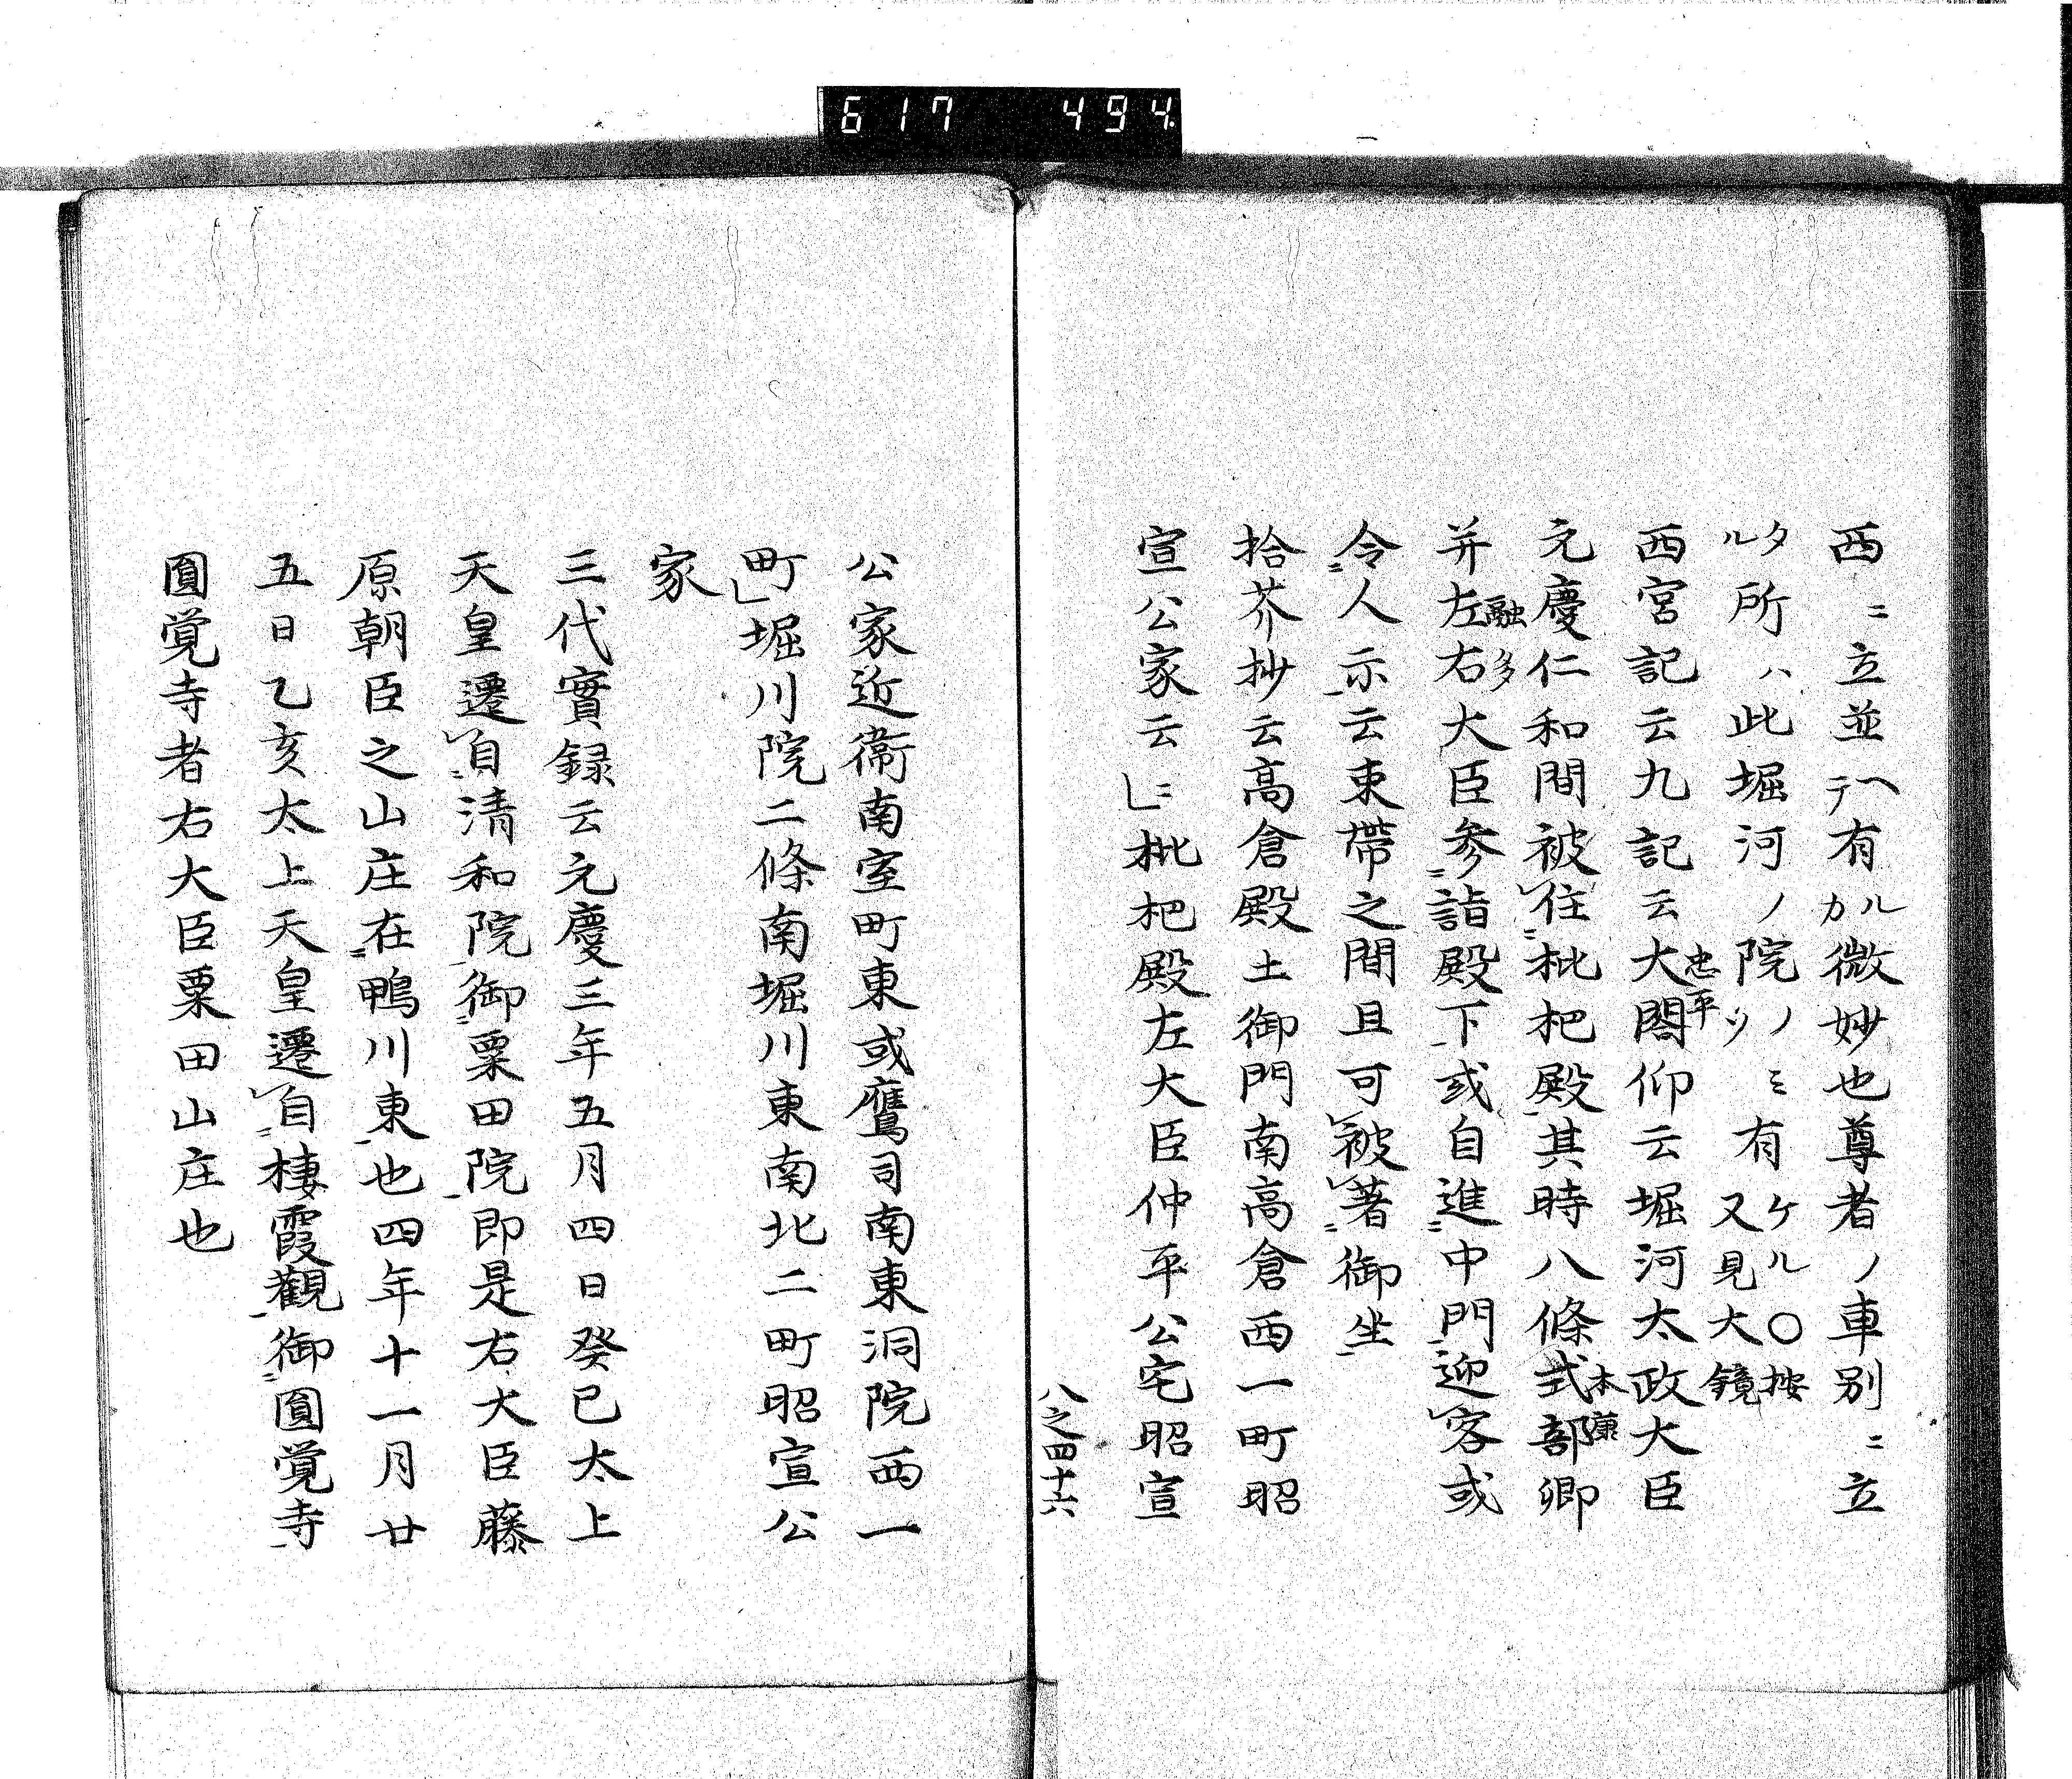 617 494
西ニ立並ヘテ有ルカ微妙也尊者ノ車別ニ立
タル所ハ此堀河ノ院ノミソ有ケル〇按又見大鏡
西宮記云九記云大閤忠平仰云堀河太政大臣
元慶仁和間被住枇杷殿其時八條式部卿本康
并左融右多大臣参詣殿下或自進中門迎客或
令人示云束帶之間且可被著御坐
拾芥抄云高倉殿土御門南高倉西一町昭
宣公家云ニ枇杷殿左大臣仲平公宅昭宣
八之四十六
公家近衞南室町東或鷹司南東洞院西一
町堀川院二條南堀川東南北二町昭宣公
家
三代實録云元慶三年五月四日癸巳太上
天皇遷自清和院御粟田院即是右大臣藤
原朝臣之山庄在鴨川東也四年十一月廿
五日乙亥太上天皇遷自棲霞觀御圓覚寺
圓覚寺者右大臣粟田山庄也